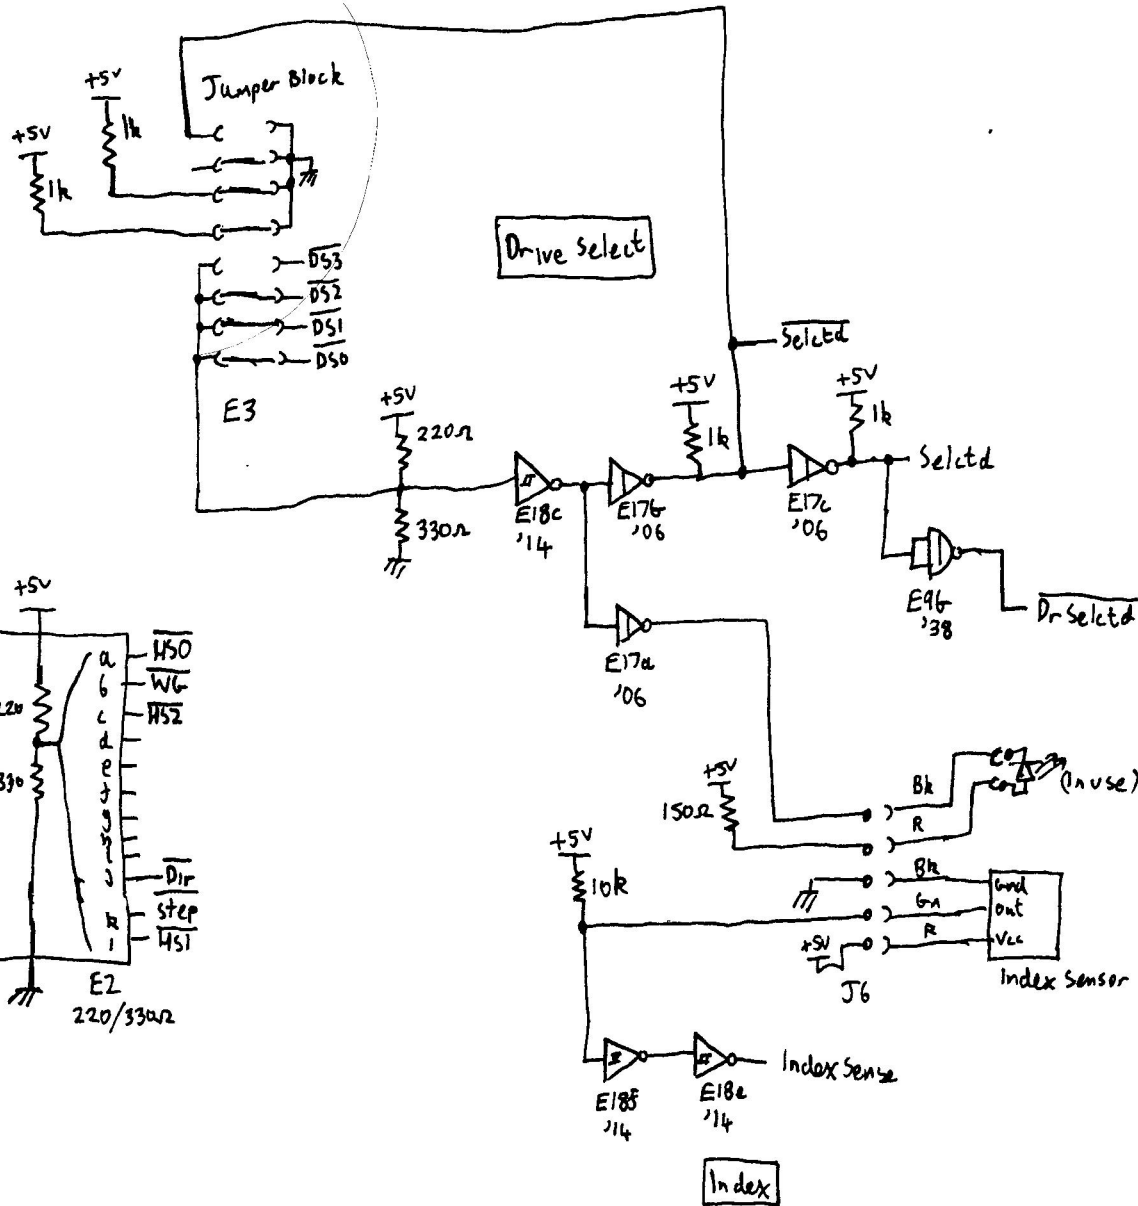 Jumper Block
+5V
1k
+5V
1k
DS3
DS2
DS1
DS0
E3
Drive Select
Selctd
+5V
220Ω
330Ω
E18c
'14
E17b
'06
+5V
1k
E17c
'06
+5V
1k
Selctd
E9b
'38
Dr Selctd
E17a
'06
+5V
a HS0
b WG
c HS2
d
e
f
g
h
i
j Dir
k Step
l HS1
330
E2
220/330Ω
+5V
150Ω
Bk
R
(In use)
+5V
10k
Bk Gnd
Gn Out
R Vcc
+5V
J6
Index Sensor
E18f
'14
E18e
'14
Index Sense
Index